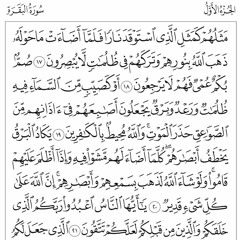 الجُزْءُ الأَوَّلُ سُورَةُ البَقَرَةِ
مَثَلُهُمْ كَمَثَلِ ٱلَّذِى ٱسْتَوْقَدَ نَارًا فَلَمَّآ أَضَآءَتْ مَا حَوْلَهُۥ
ذَهَبَ ٱللَّهُ بِنُورِهِمْ وَتَرَكَهُمْ فِى ظُلُمَٰتٍ لَّا يُبْصِرُونَ ١٧ صُمٌّۢ
بُكْمٌ عُمْىٌ فَهُمْ لَا يَرْجِعُونَ ١٨ أَوْ كَصَيِّبٍ مِّنَ ٱلسَّمَآءِ فِيهِ
ظُلُمَٰتٌ وَرَعْدٌ وَبَرْقٌ يَجْعَلُونَ أَصَٰبِعَهُمْ فِىٓ ءَاذَانِهِم مِّنَ
ٱلصَّوَٰعِقِ حَذَرَ ٱلْمَوْتِ وَٱللَّهُ مُحِيطٌۢ بِٱلْكَٰفِرِينَ ١٩ يَكَادُ ٱلْبَرْقُ
يَخْطَفُ أَبْصَٰرَهُمْ كُلَّمَآ أَضَآءَ لَهُم مَّشَوْا۟ فِيهِ وَإِذَآ أَظْلَمَ عَلَيْهِمْ
قَامُوا۟ وَلَوْ شَآءَ ٱللَّهُ لَذَهَبَ بِسَمْعِهِمْ وَأَبْصَٰرِهِمْ إِنَّ ٱللَّهَ عَلَىٰ
كُلِّ شَىْءٍ قَدِيرٌ ٢٠ يَٰٓأَيُّهَا ٱلنَّاسُ ٱعْبُدُوا۟ رَبَّكُمُ ٱلَّذِى
خَلَقَكُمْ وَٱلَّذِينَ مِن قَبْلِكُمْ لَعَلَّكُمْ تَتَّقُونَ ٢١ ٱلَّذِى جَعَلَ لَكُمُ